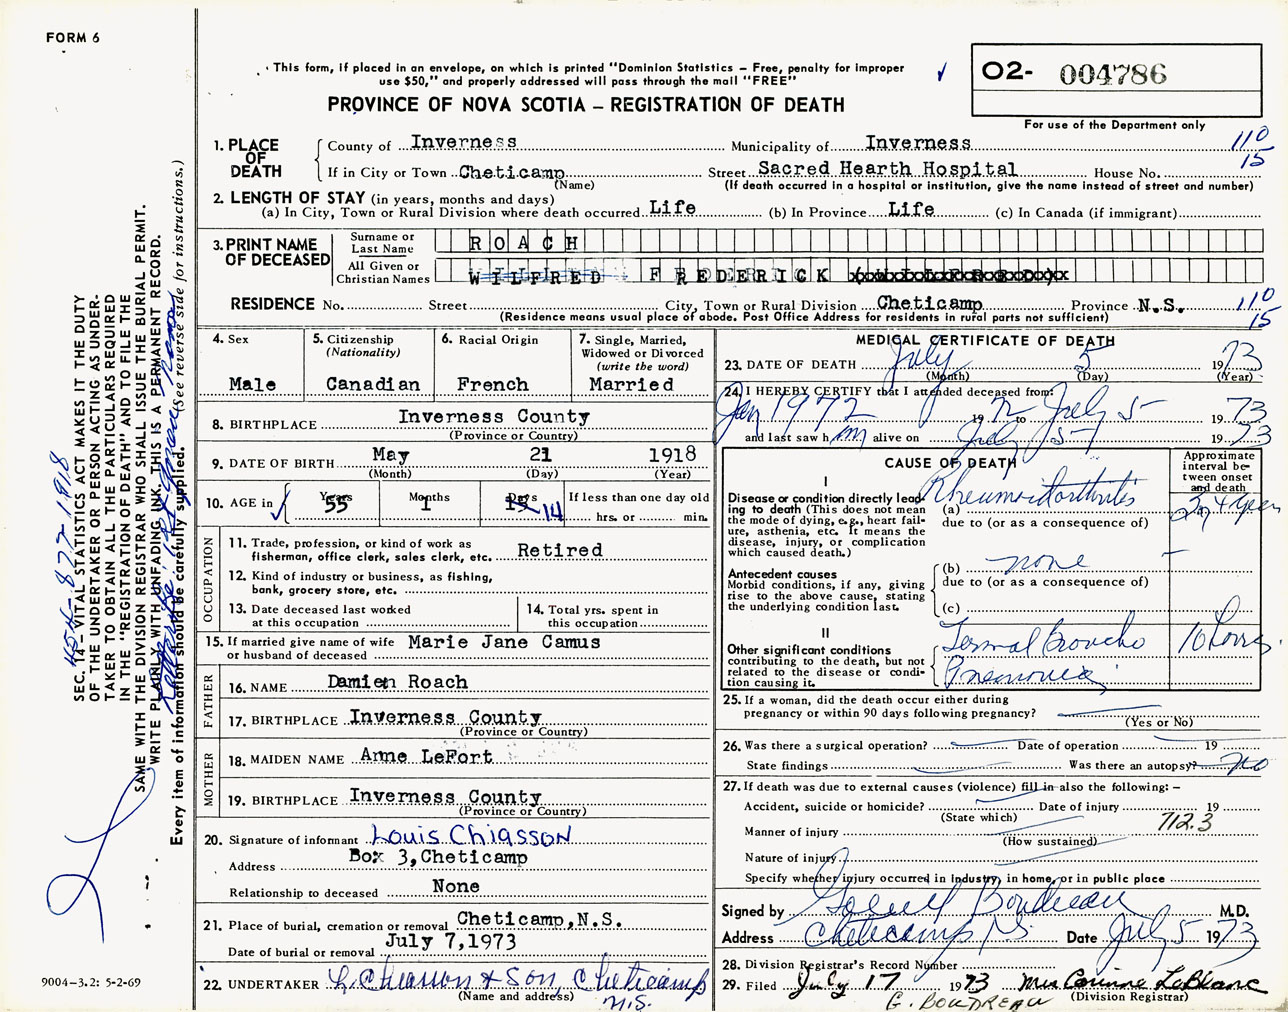 FORM 6
This form, if placed in an envelope, on which is printed "Dominion Statistics – Free, penalty for improper
use $50," and properly addressed will pass through the mail "FREE"
O2- 004786
PROVINCE OF NOVA SCOTIA – REGISTRATION OF DEATH
For use of the Department only
1. PLACE OF DEATH
County of Inverness Municipality of Inverness 110
15
If in City or Town Cheticamp Street Sacred Hearth Hospital House No.
(Name) (If death occurred in a hospital or institution, give the name instead of street and number)
2. LENGTH OF STAY (in years, months and days)
(a) In City, Town or Rural Division where death occurred Life (b) In Province Life (c) In Canada (if immigrant)
3. PRINT NAME OF DECEASED
Surname or Last Name ROACH
All Given or Christian Names WILFRED FREDERICK
RESIDENCE No. Street City, Town or Rural Division Cheticamp Province N.S. 110
15
(Residence means usual place of abode. Post Office Address for residents in rural parts not sufficient)
4. Sex
Male
5. Citizenship
(Nationality)
Canadian
6. Racial Origin
French
7. Single, Married,
Widowed or Divorced
(write the word)
Married
8. BIRTHPLACE Inverness County
(Province or Country)
9. DATE OF BIRTH May 21 1918
(Month) (Day) (Year)
10. AGE in Years Months Days If less than one day old
55 1 15 14 hrs. or min.
OCCUPATION
11. Trade, profession, or kind of work as
fisherman, office clerk, sales clerk, etc. Retired
12. Kind of industry or business, as fishing,
bank, grocery store, etc.
13. Date deceased last worked
at this occupation
14. Total yrs. spent in
this occupation
15. If married give name of wife
or husband of deceased Marie Jane Camus
FATHER
16. NAME Damien Roach
17. BIRTHPLACE Inverness County
(Province or Country)
MOTHER
18. MAIDEN NAME Anne LeFort
19. BIRTHPLACE Inverness County
(Province or Country)
20. Signature of informant Louis Chiasson
Address Box 3, Cheticamp
Relationship to deceased None
21. Place of burial, cremation or removal Cheticamp, N.S.
Date of burial or removal July 7, 1973
22. UNDERTAKER L. Chiasson & Son, Cheticamp
(Name and address) N.S.
MEDICAL CERTIFICATE OF DEATH
23. DATE OF DEATH July 5 1973
(Month) (Day) (Year)
24. I HEREBY CERTIFY that I attended deceased from:
Jan 1972 1972 to July 5 1973
and last saw him alive on July 5 1973
CAUSE OF DEATH
Approximate
interval be-
tween onset
and death
I
Disease or condition directly lead-
ing to death (This does not
mean the mode of dying, e.g., heart fail-
ure, asthenia, etc. It means the
disease, injury, or complication
which caused death.)
(a) Rheumatoid arthritis
due to (or as a consequence of)
Antecedent causes
Morbid conditions, if any, giving
rise to the above cause, stating
the underlying condition last.
(b) none
due to (or as a consequence of)
(c)
II
Other significant conditions
contributing to the death, but not
related to the disease or condi-
tion causing it.
Termal Broncho 10 hours
Pneumonia
25. If a woman, did the death occur either during
pregnancy or within 90 days following pregnancy?
(Yes or No)
26. Was there a surgical operation? Date of operation 19
State findings Was there an autopsy? no
27. If death was due to external causes (violence) fill in also the following: –
Accident, suicide or homicide? Date of injury 19
(State which) 712.3
Manner of injury
(How sustained)
Nature of injury
Specify whether injury occurred in industry, in home, or in public place
Signed by Boudreau M.D.
Address Cheticamp NS Date July 5 1973
28. Division Registrar's Record Number
29. Filed July 17 1973 Mrs Corinne LeBlanc
(Division Registrar)
G. BOUDREAU
SEC. 14 – VITAL STATISTICS ACT MAKES IT THE DUTY
OF THE UNDERTAKER OR PERSON ACTING AS UNDER-
TAKER TO OBTAIN ALL THE PARTICULARS REQUIRED
IN THE "REGISTRATION OF DEATH" AND TO FILE THE
SAME WITH THE DIVISION REGISTRAR WHO SHALL ISSUE THE BURIAL PERMIT.
WRITE PLAINLY WITH UNFADING INK. THIS IS A PERMANENT RECORD.
Every item of information should be carefully supplied. (See reverse side for instructions.)
9004–3.2: 5-2-69